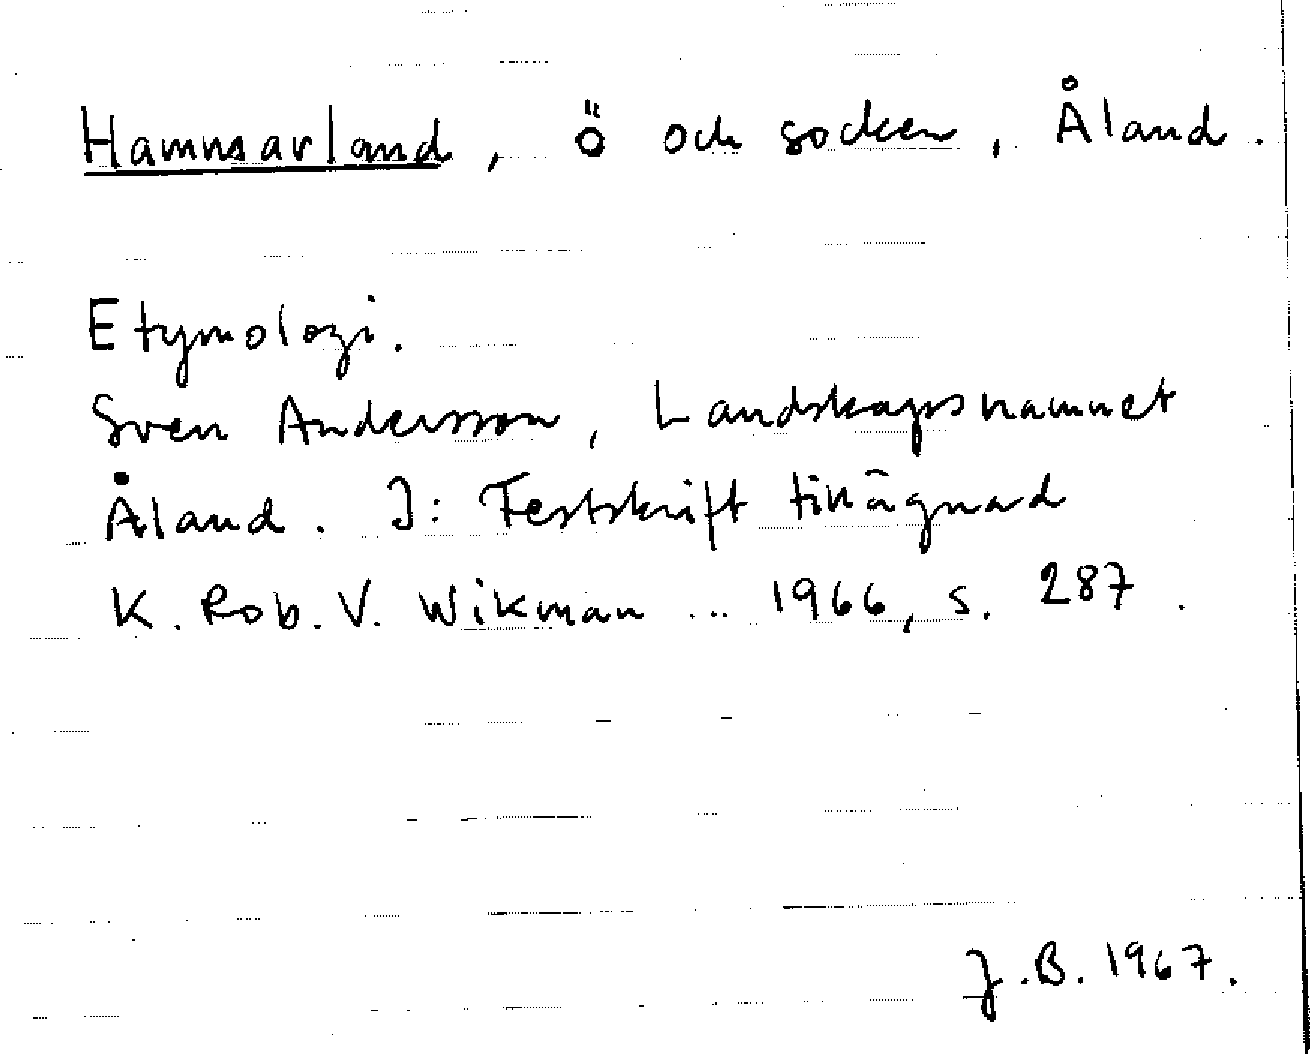 Hamnsarland, ö och socken, Åland.
Etymologi.
Sven Andersson, Landskapsnamnet
Åland. I: Festskrift tillägnad
K. Rob. V. Wikman ... 1966, s. 287.
J.B. 1967.